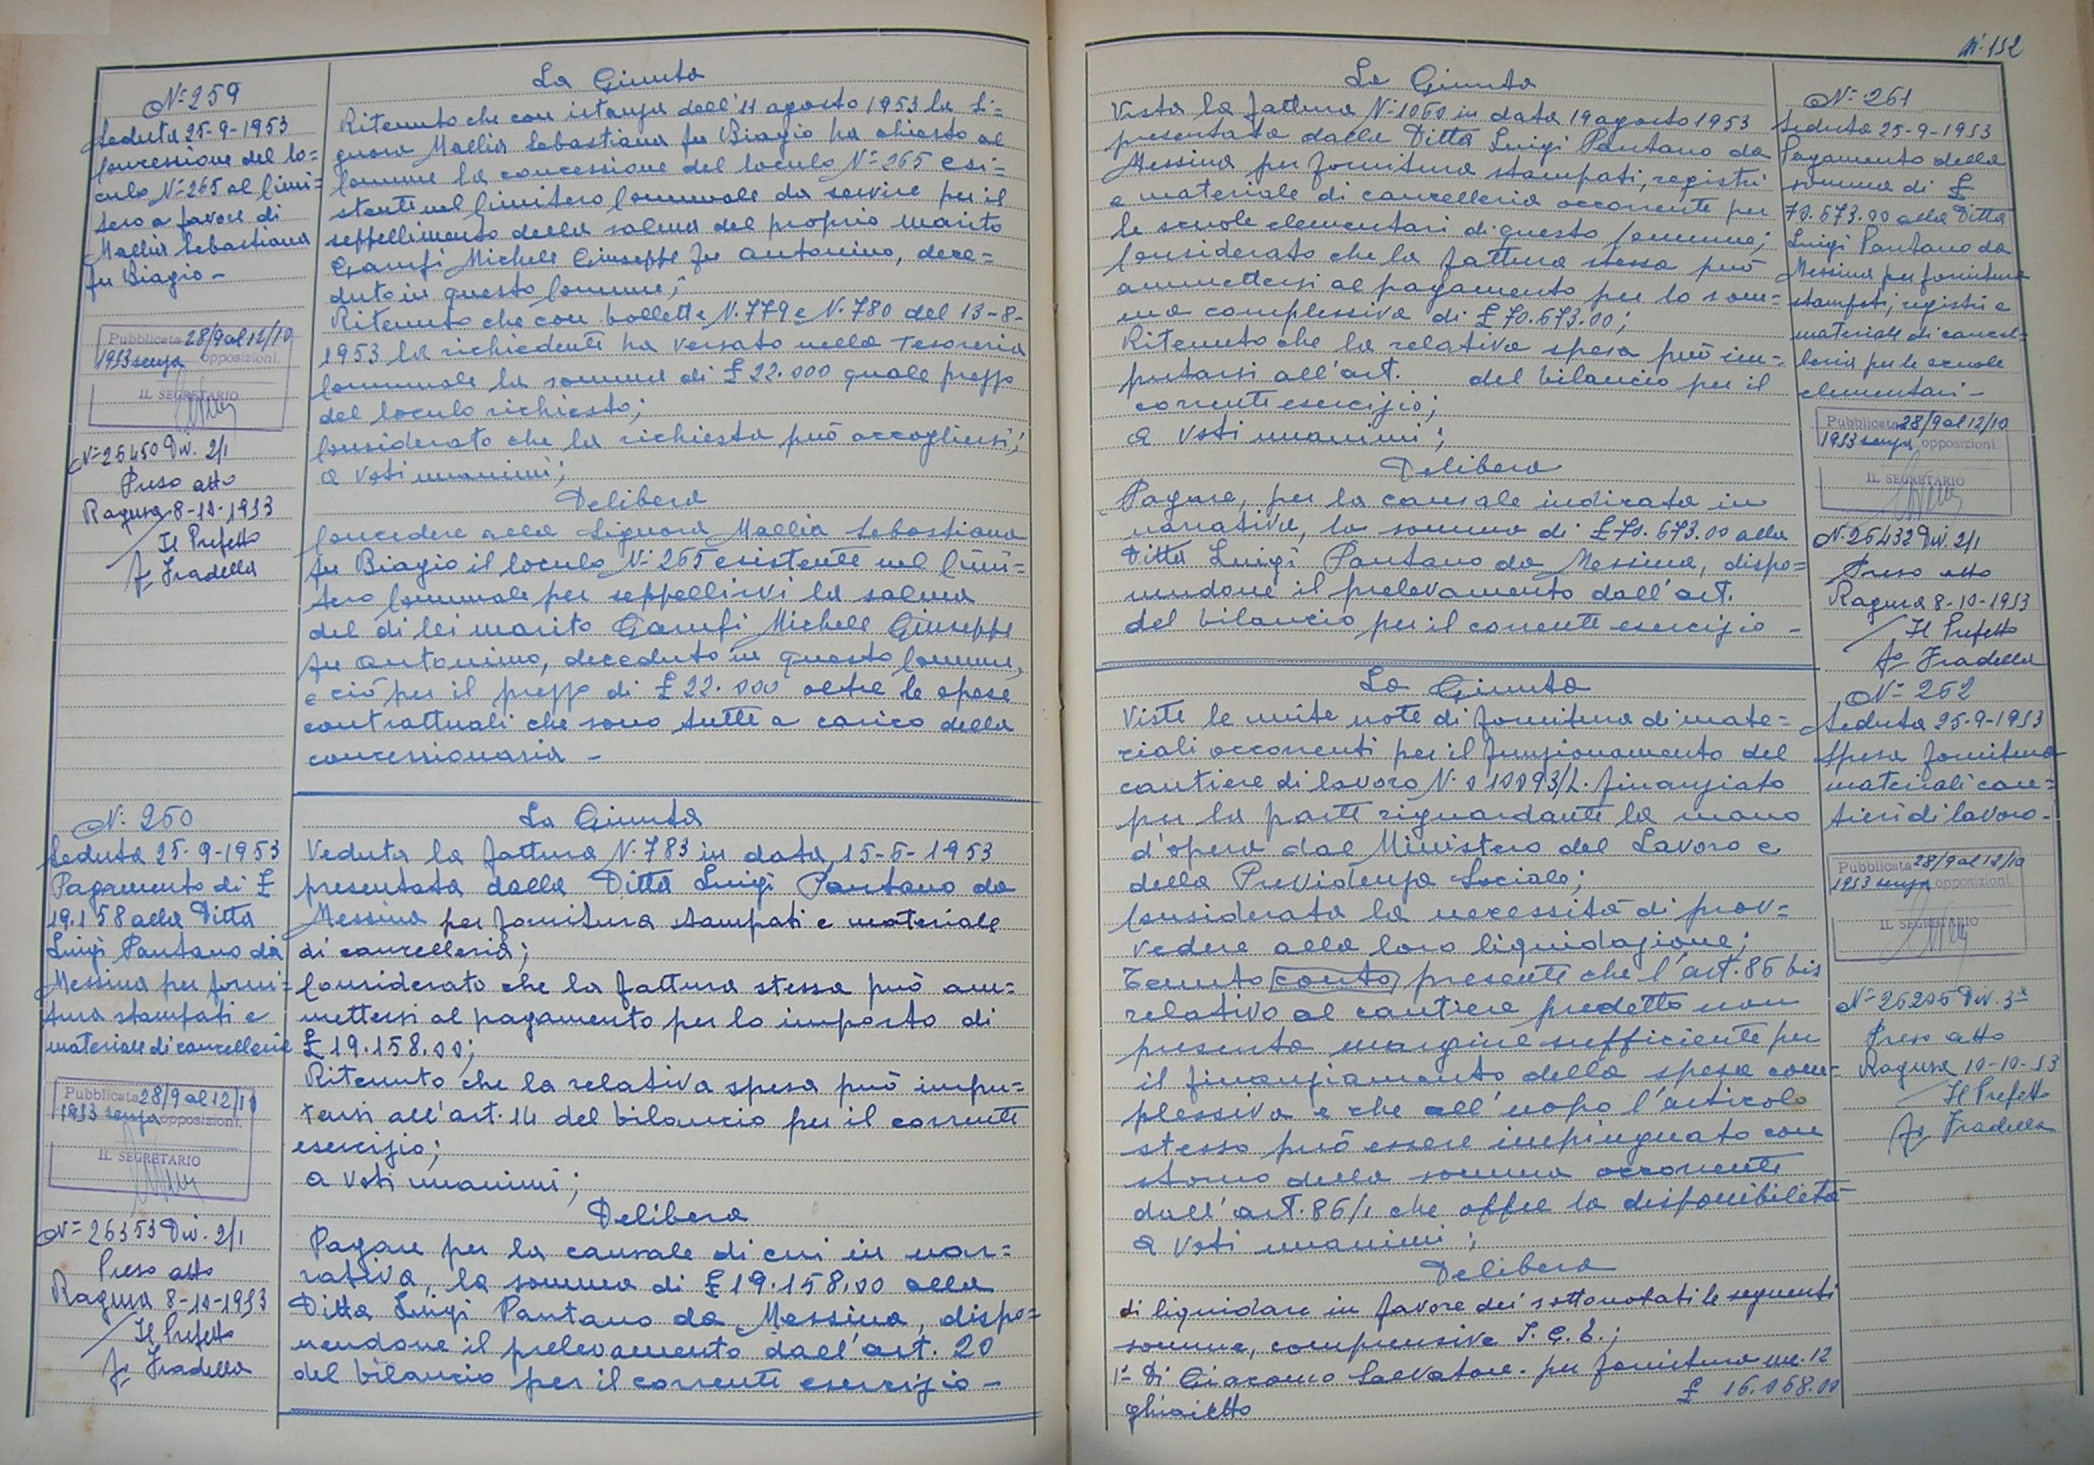 N= 259
Seduta 25-9-1953
Concessione del lo=
culo N= 265 al Cimi=
tero a favore di
Mallia Sebastiana
fu Biagio -
Pubblicata 28/9 al 12/10
1953 senza opposizioni.
IL SEGRETARIO
N= 26450 Div. 2/1
Preso atto
Ragusa 8-10-1953
Il Prefetto
F= Fradella
La Giunta
Ritenuto che con istanza dell'11 agosto 1953 la Si=
gnora Mallia Sebastiana fu Biagio ha chiesto al
Comune la concessione del loculo N= 265 esi=
stente nel Cimitero Comunale da servire per il
seppellimento della salma del proprio marito
Garufi Michele Giuseppe fu Antonino, dece=
duto in questo Comune;
Ritenuto che con bollette N. 779 e N. 780 del 13-8-
1953 la richiedente ha versato nella Tesoreria
Comunale la somma di £ 22.000 quale prezzo
del loculo richiesto;
Considerato che la richiesta può accogliersi;
a voti unanimi;
Delibera
Concedere alla Signora Mallia Sebastiana
fu Biagio il loculo N= 265 esistente nel Cimi=
tero Comunale per seppellirvi la salma
del di lei marito Garufi Michele Giuseppe
fu Antonino, deceduto in questo Comune,
e ciò per il prezzo di £ 22.000 oltre le spese
contrattuali che sono tutte a carico della
concessionaria -
N: 260
Seduta 25-9-1953
Pagamento di £
19.158 alla Ditta
Luigi Pantano da
Messina per forni=
tura stampati e
materiale di cancelleria
Pubblicata 28/9 al 12/10
1953 senza opposizioni.
IL SEGRETARIO
N= 26353 Div. 2/1
Preso atto
Ragusa 8-10-1953
Il Prefetto
F= Fradella
La Giunta
Veduta la fattura N. 783 in data 15-6-1953
presentata dalla Ditta Luigi Pantano da
Messina per fornitura stampati e materiale
di cancelleria;
Considerato che la fattura stessa può am=
mettersi al pagamento per lo importo di
£ 19.158.00;
Ritenuto che la relativa spesa può impu=
tarsi all'art. 14 del bilancio per il corrente
esercizio;
a voti unanimi;
Delibera
Pagare per la causale di cui in nar=
rativa, la somma di £ 19.158,00 alla
Ditta Luigi Pantano da Messina, dispo=
nendone il prelevamento dall'art. 20
del bilancio per il corrente esercizio -
N: 132
La Giunta
Vista la fattura N: 1060 in data 19 agosto 1953
presentata dalla Ditta Luigi Pantano da
Messina per fornitura stampati, registri
e materiale di cancelleria occorrente per
le scuole elementari di questo Comune;
Considerato che la fattura stessa può
ammettersi al pagamento per lo som=
ma complessiva di £ 70.673.00;
Ritenuto che la relativa spesa può im=
putarsi all'art. del bilancio per il
corrente esercizio;
a voti unanimi;
Delibera
Pagare, per la causale indicata in
narrativa, la somma di £ 70.673.00 alla
Ditta Luigi Pantano da Messina, dispo=
nendone il prelevamento dall'art.
del bilancio per il corrente esercizio -
N= 261
Seduta 25-9-1953
Pagamento della
somma di £
70.673.00 alla Ditta
Luigi Pantano da
Messina per fornitura
stampati, registri e
materiale di cancel=
leria per le scuole
elementari -
Pubblicata 28/9 al 12/10
1953 senza opposizioni.
IL SEGRETARIO
N. 26432 Div. 2/1
Preso atto
Ragusa 8-10-1953
Il Prefetto
F= Fradella
La Giunta
Viste le unite note di fornitura di mate=
riali occorrenti per il funzionamento del
cantiere di lavoro N. 010093/L. finanziato
per la parte riguardante la mano
d'opera dal Ministero del Lavoro e
della Previdenza Sociale;
Considerata la necessità di prov=
vedere alla loro liquidazione;
Tenuto conto presente che l'art. 86 bis
relativo al cantiere predetto non
presenta margine sufficiente per
il finanziamento della spesa com=
plessiva e che all'uopo l'articolo
stesso può essere impinguato con
storno della somma occorrente
dall'art. 86/1 che offre la disponibilità
a voti unanimi;
Delibera
di liquidare in favore dei sottonotati le seguenti
somme, comprensive I.G.E.;
1= Di Giacomo Salvatore - per fornitura mc. 12
ghiaietto £ 16.068.00
N= 262
Seduta 25-9-1953
Spesa fornitura
materiali can=
tieri di lavoro -
Pubblicata 28/9 al 12/10
1953 senza opposizioni.
IL SEGRETARIO
N= 26206 Div. 3ª
Preso atto
Ragusa 10-10-53
Il Prefetto
F= Fradella